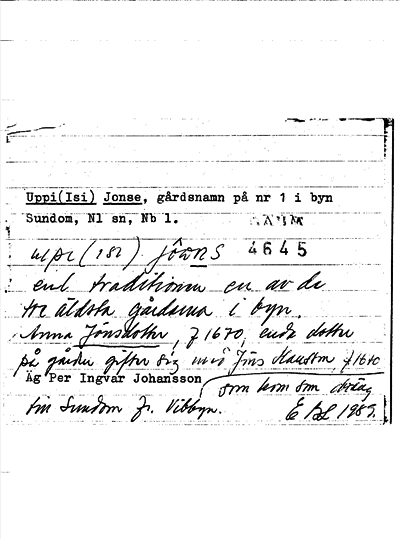 Uppi(Isi) Jonse, gårdsnamn på nr 1 i byn
Sundom, Nl sn, Nb l.
upi (isi) jôɷns 4645
enl traditionen en av de
tre äldsta gårdarna i byn.
Anna Jönsdotter, f 1670, enda dotter
på gården gifter sig med Jöns Klausson f 1670
Äg Per Ingvar Johansson som kom som dräng
till Sundom fr. Vibbyn. E BL 1989.